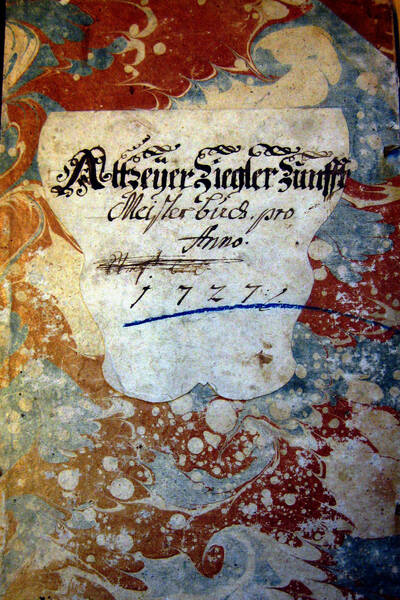 Altzeÿer Ziegler Zunfft
Meister buch pro
Anno.
1727